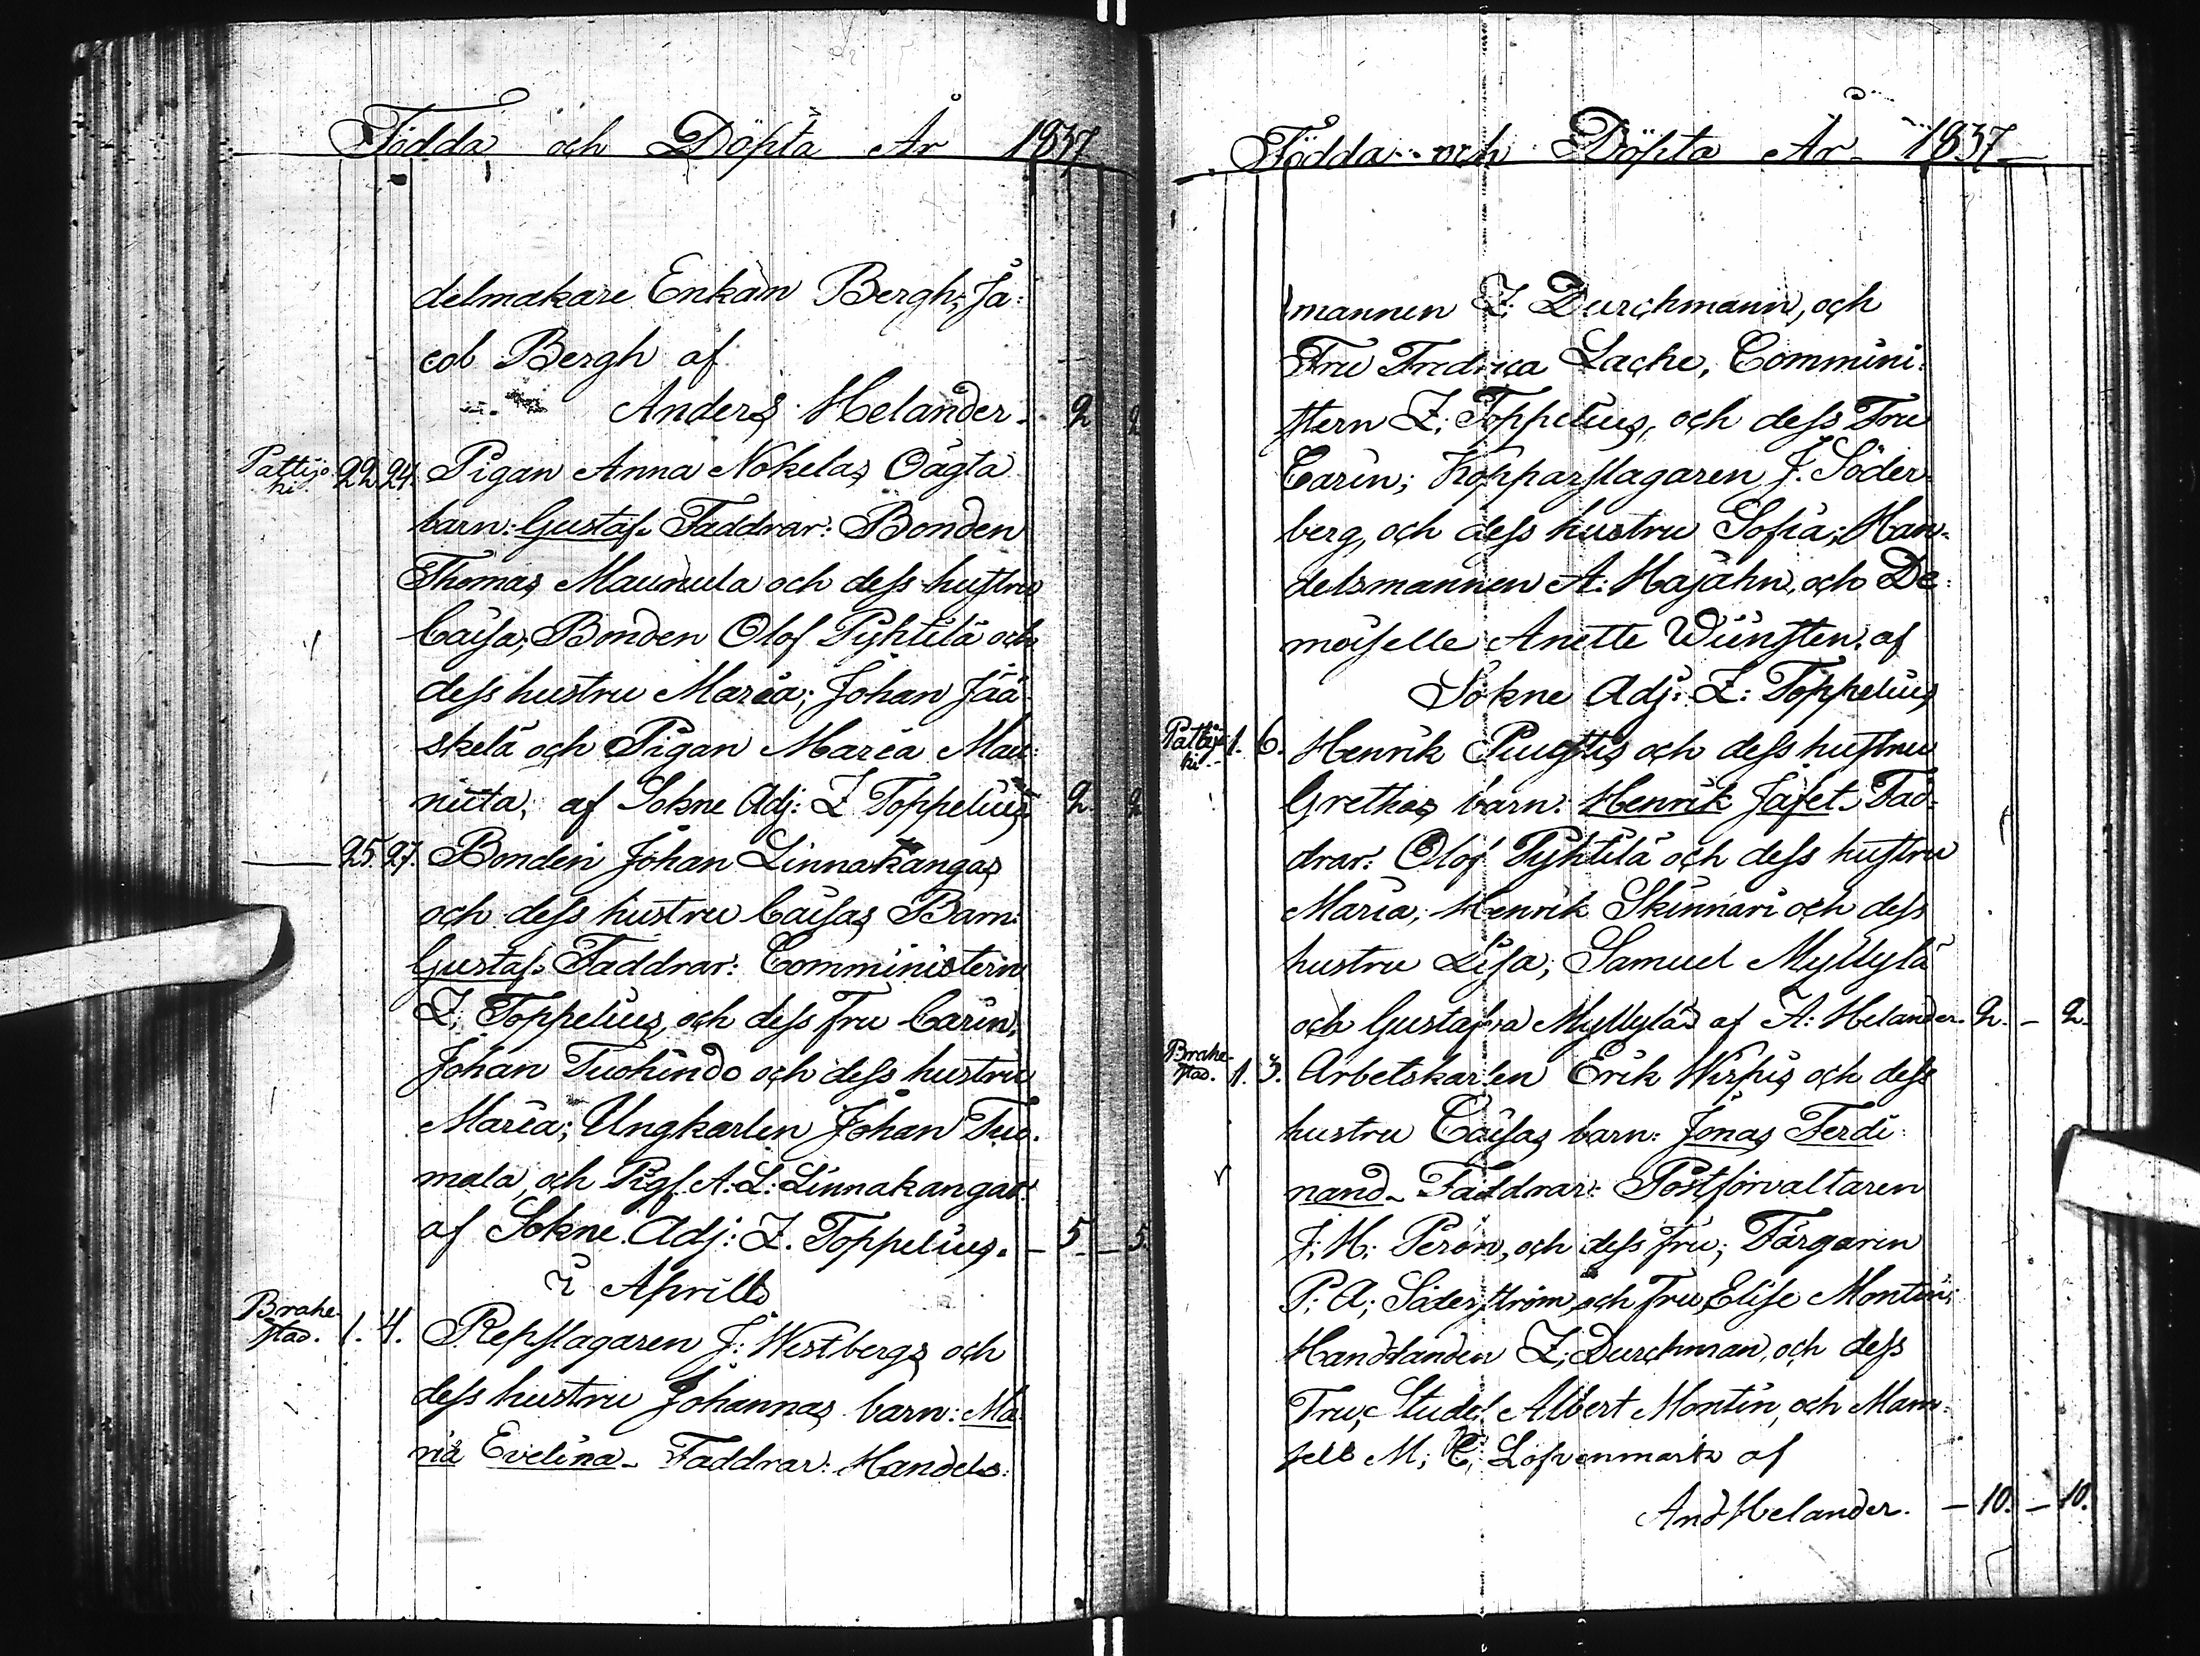 Födda och Döpta År 1837
delmakare Enkan Bergh; Ja:
cob Bergh af
Anders Helander. 2 2
Pattijo: 22. 24. Pigan Anna Nokelas Oägta
ki.
barn: Gustaf. Faddrar: Bonden
Thomas Maunula och dess hustru
Caisa; Bonden Olof Pyhtilä och
dess hustru Maria; Johan Jää-
skelä och Pigan Maria Mau:
nuta; af Sokne Adj: Z Toppelius 2 2
25. 27. Bonden Johan Linnakangas
och dess hustru Caisas Barn:
Gustaf. Faddrar: Comministern
Z; Toppelius, och dess Fru Carin;
Johan Tuohindo och dess hustru
Maria; Ungkarlen Johan Tuo-
mala, och Pig. A: L: Linnakangas:
af Sokne Adj: Z. Toppelius. - 5 - 5.
i Aprill
Brahe-
stad. 1. 4. Repslagaren J: Westbergs och
dess hustru Johannas barn: Ma
ria Evelina - Faddrar: Handels:
Födda och Döpta År 1837
mannen Z Durchmann, och
Fru Fredrica Lache, Commini:
stern Z; Toppelius, och dess Fru
Carin; Kopparslagaren J. Söder-
berg, och dess hustru Sofia; Han-
delsmannen A: Hajahn, och De:
moiselle Anette Wünsten. af
Sokne Adj: Z: Toppelius
Pattijo 1. 6. Henrik Puustis och dess hustru
ki.
Grethas barn: Henrik Jafet. Fad-
drar: Olof Pyhtilä och dess hustru
Maria; Henrik Skinnari och dess
hustru Lisa; Samuel Myllylä
och Gustafva Myllylä af A: Helander. 2. - 2.
Brahe-
stad. 1. 3. Arbetskarlen Erik Wirpis och dess
hustru Caisas barn: Jonas Ferdi:
nand - Faddrar: Postförvaltaren
J; H: Peron, och dess Fru; Färgarin
P; A; Söderström och Fru Elise Montin;
Handlanden Z; Durchman, och dess
Fru; Stud. Albert Montin, och Mam:
sell M; C; af
And Helander. - 10. - 10.